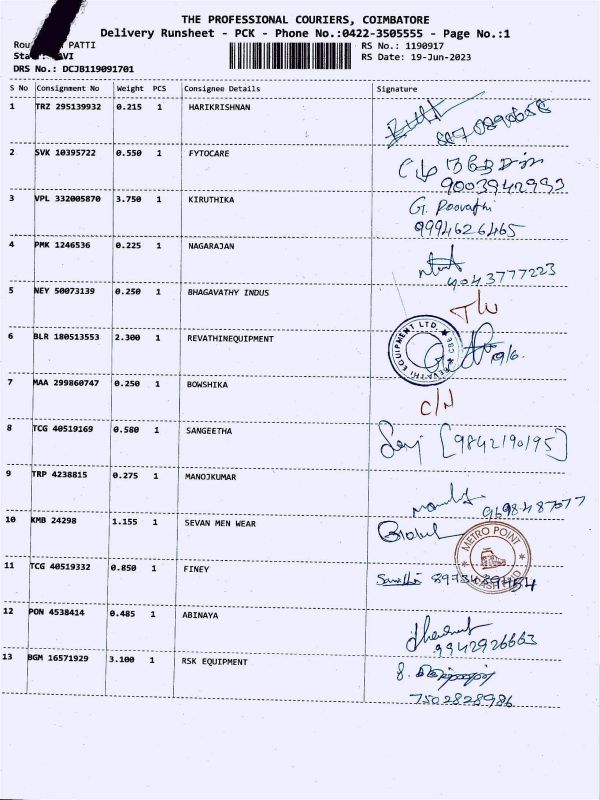 THE PROFESSIONAL COURIERS, COIMBATORE
Delivery Runsheet - PCK - Phone No.:0422-3505555 - Page No.:1
Rou PATTI RS No.: 1190917
Sta AVI RS Date: 19-Jun-2023
DRS No.: DCJB119091701
S No Consignment No Weight PCS Consignee Details Signature
1 TRZ 295139932 0.215 1 HARIKRISHNAN
2 SVK 10395722 0.550 1 FYTOCARE
9003942993
3 VPL 332005870 3.750 1 KIRUTHIKA G. Poovathi
9994626465
4 PMK 1246536 0.225 1 NAGARAJAN
9043777223
5 NEY 50073139 0.250 1 BHAGAVATHY INDUS
6 BLR 180513553 2.300 1 REVATHINEQUIPMENT REVATHI EQUIPMENT LTD. ★ CBE ★
19/6.
7 MAA 299860747 0.250 1 BOWSHIKA
C/N
8 TCG 40519169 0.580 1 SANGEETHA [9842190195]
9 TRP 4238815 0.275 1 MANOJKUMAR
9698487077
10 KMB 24298 1.155 1 SEVAN MEN WEAR
METRO POINT
11 TCG 40519332 0.850 1 FINEY
12 PON 4538414 0.485 1 ABINAYA
9942926663
13 BGM 16571929 3.100 1 RSK EQUIPMENT
7502828986